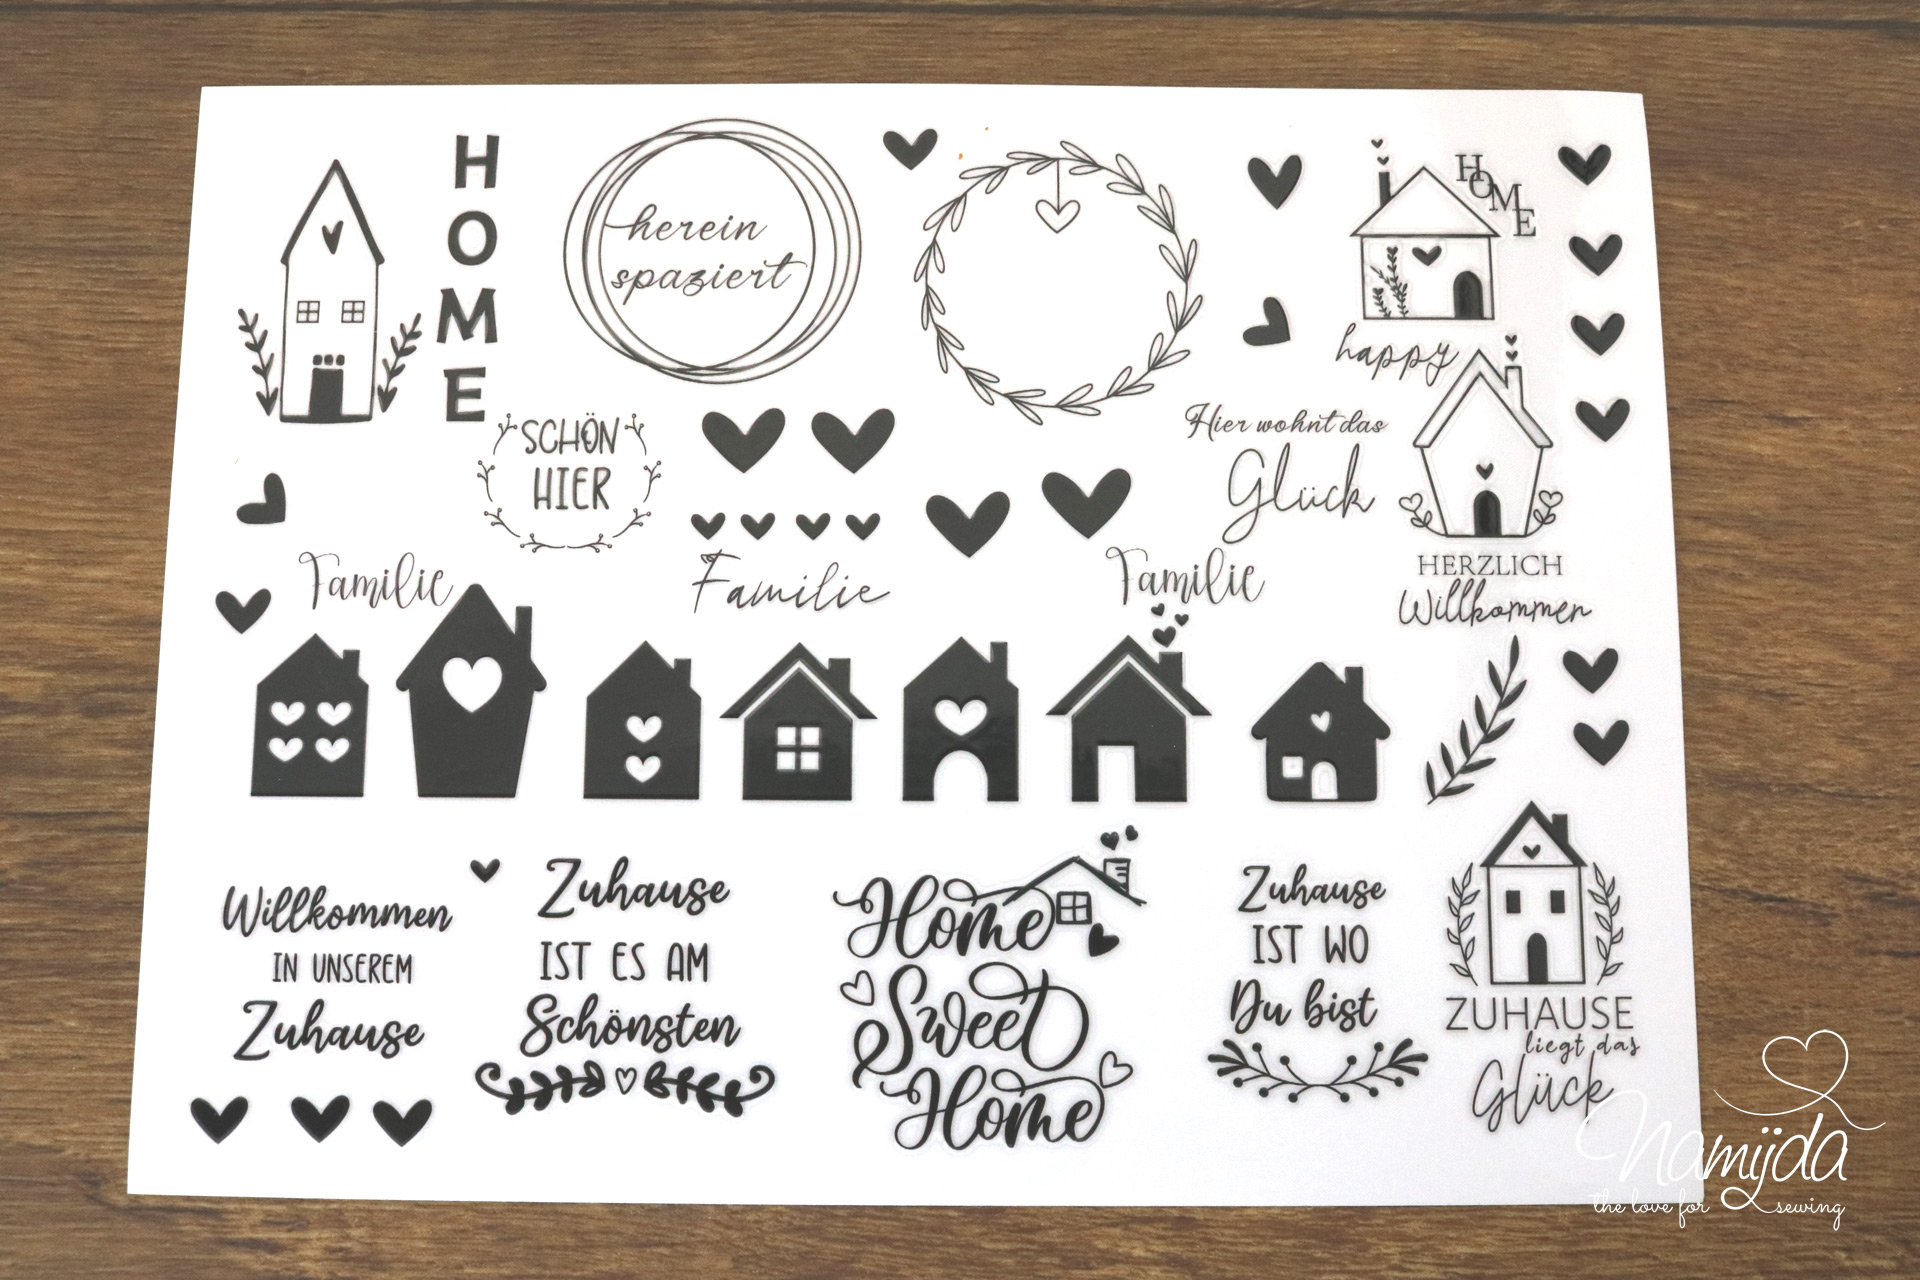 HOME
herein
spaziert
HOME
happy
SCHÖN
HIER
Hier wohnt das
Glück
HERZLICH
Willkommen
Familie
Familie
Familie
Willkommen
IN UNSEREM
Zuhause
Zuhause
IST ES AM
Schönsten
Home
Sweet
Home
Zuhause
IST WO
Du bist
ZUHAUSE
liegt das
Glück
Namijda
the love for sewing